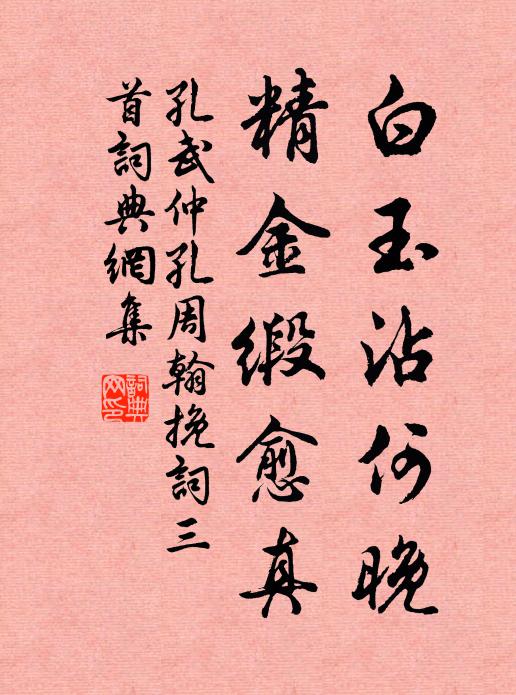 白玉沾何晚
精金缎愈真
孔武仲孔周翰挽詞三
首詞典網集
詞典網印